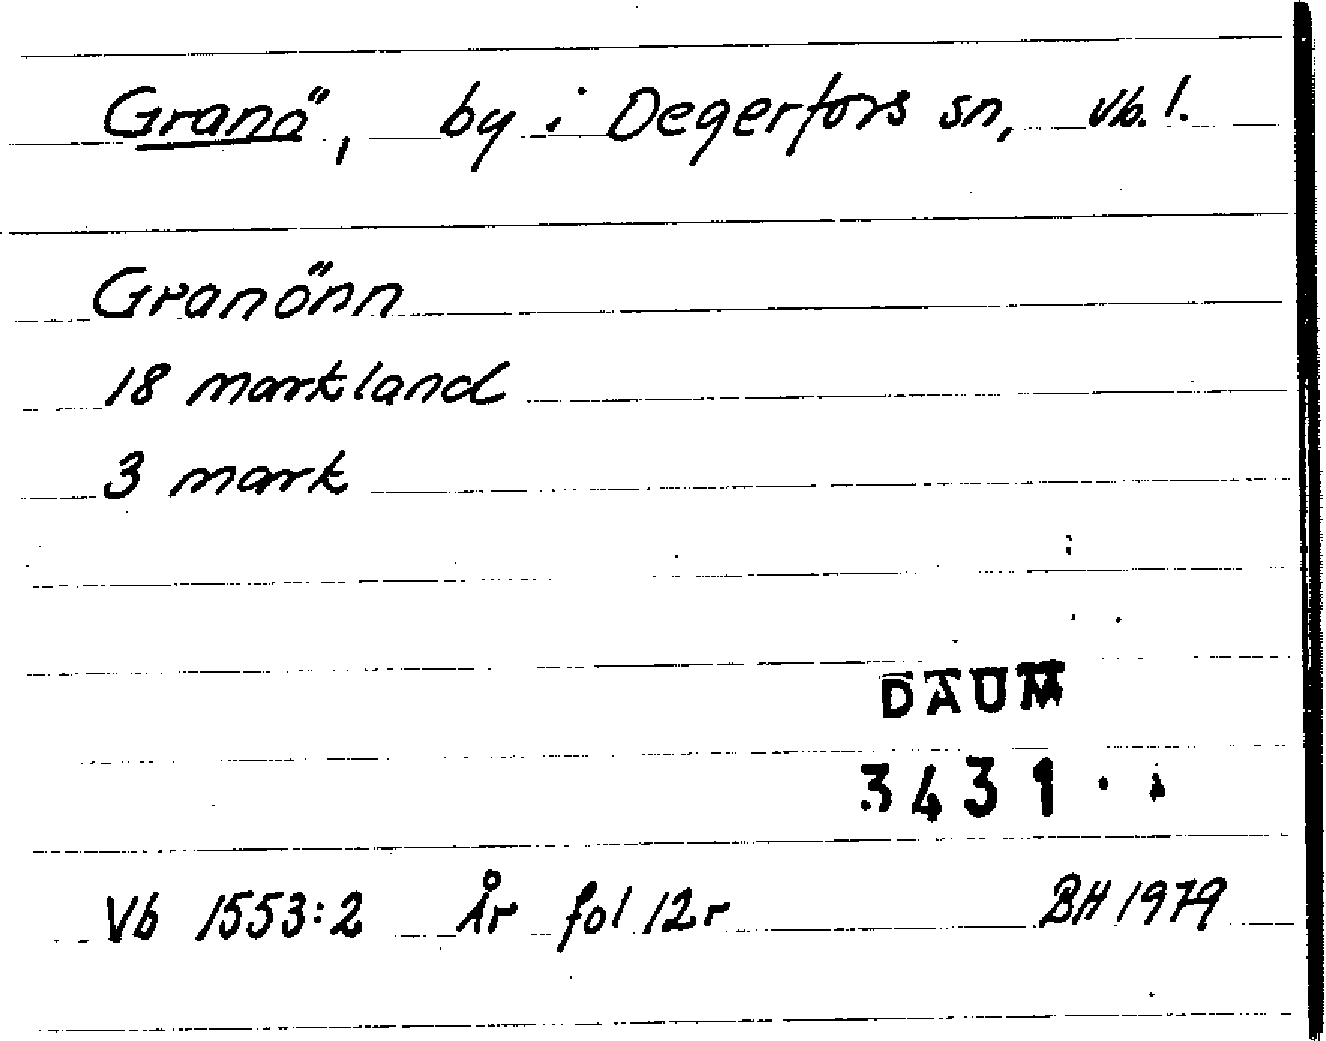 Granö, by i Degerfors sn, Vb. l.
Granönn
18 markland
3 mark
DAUM
3431
Vb 1553:2 År fol 12r BH 1979